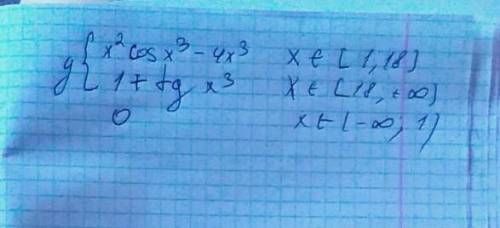 y { x² cos x³ - 4x³ x ∈ [1, 18]
1 + tg x³ x ∈ [18, +∞)
0 x ∈ [-∞, 1)